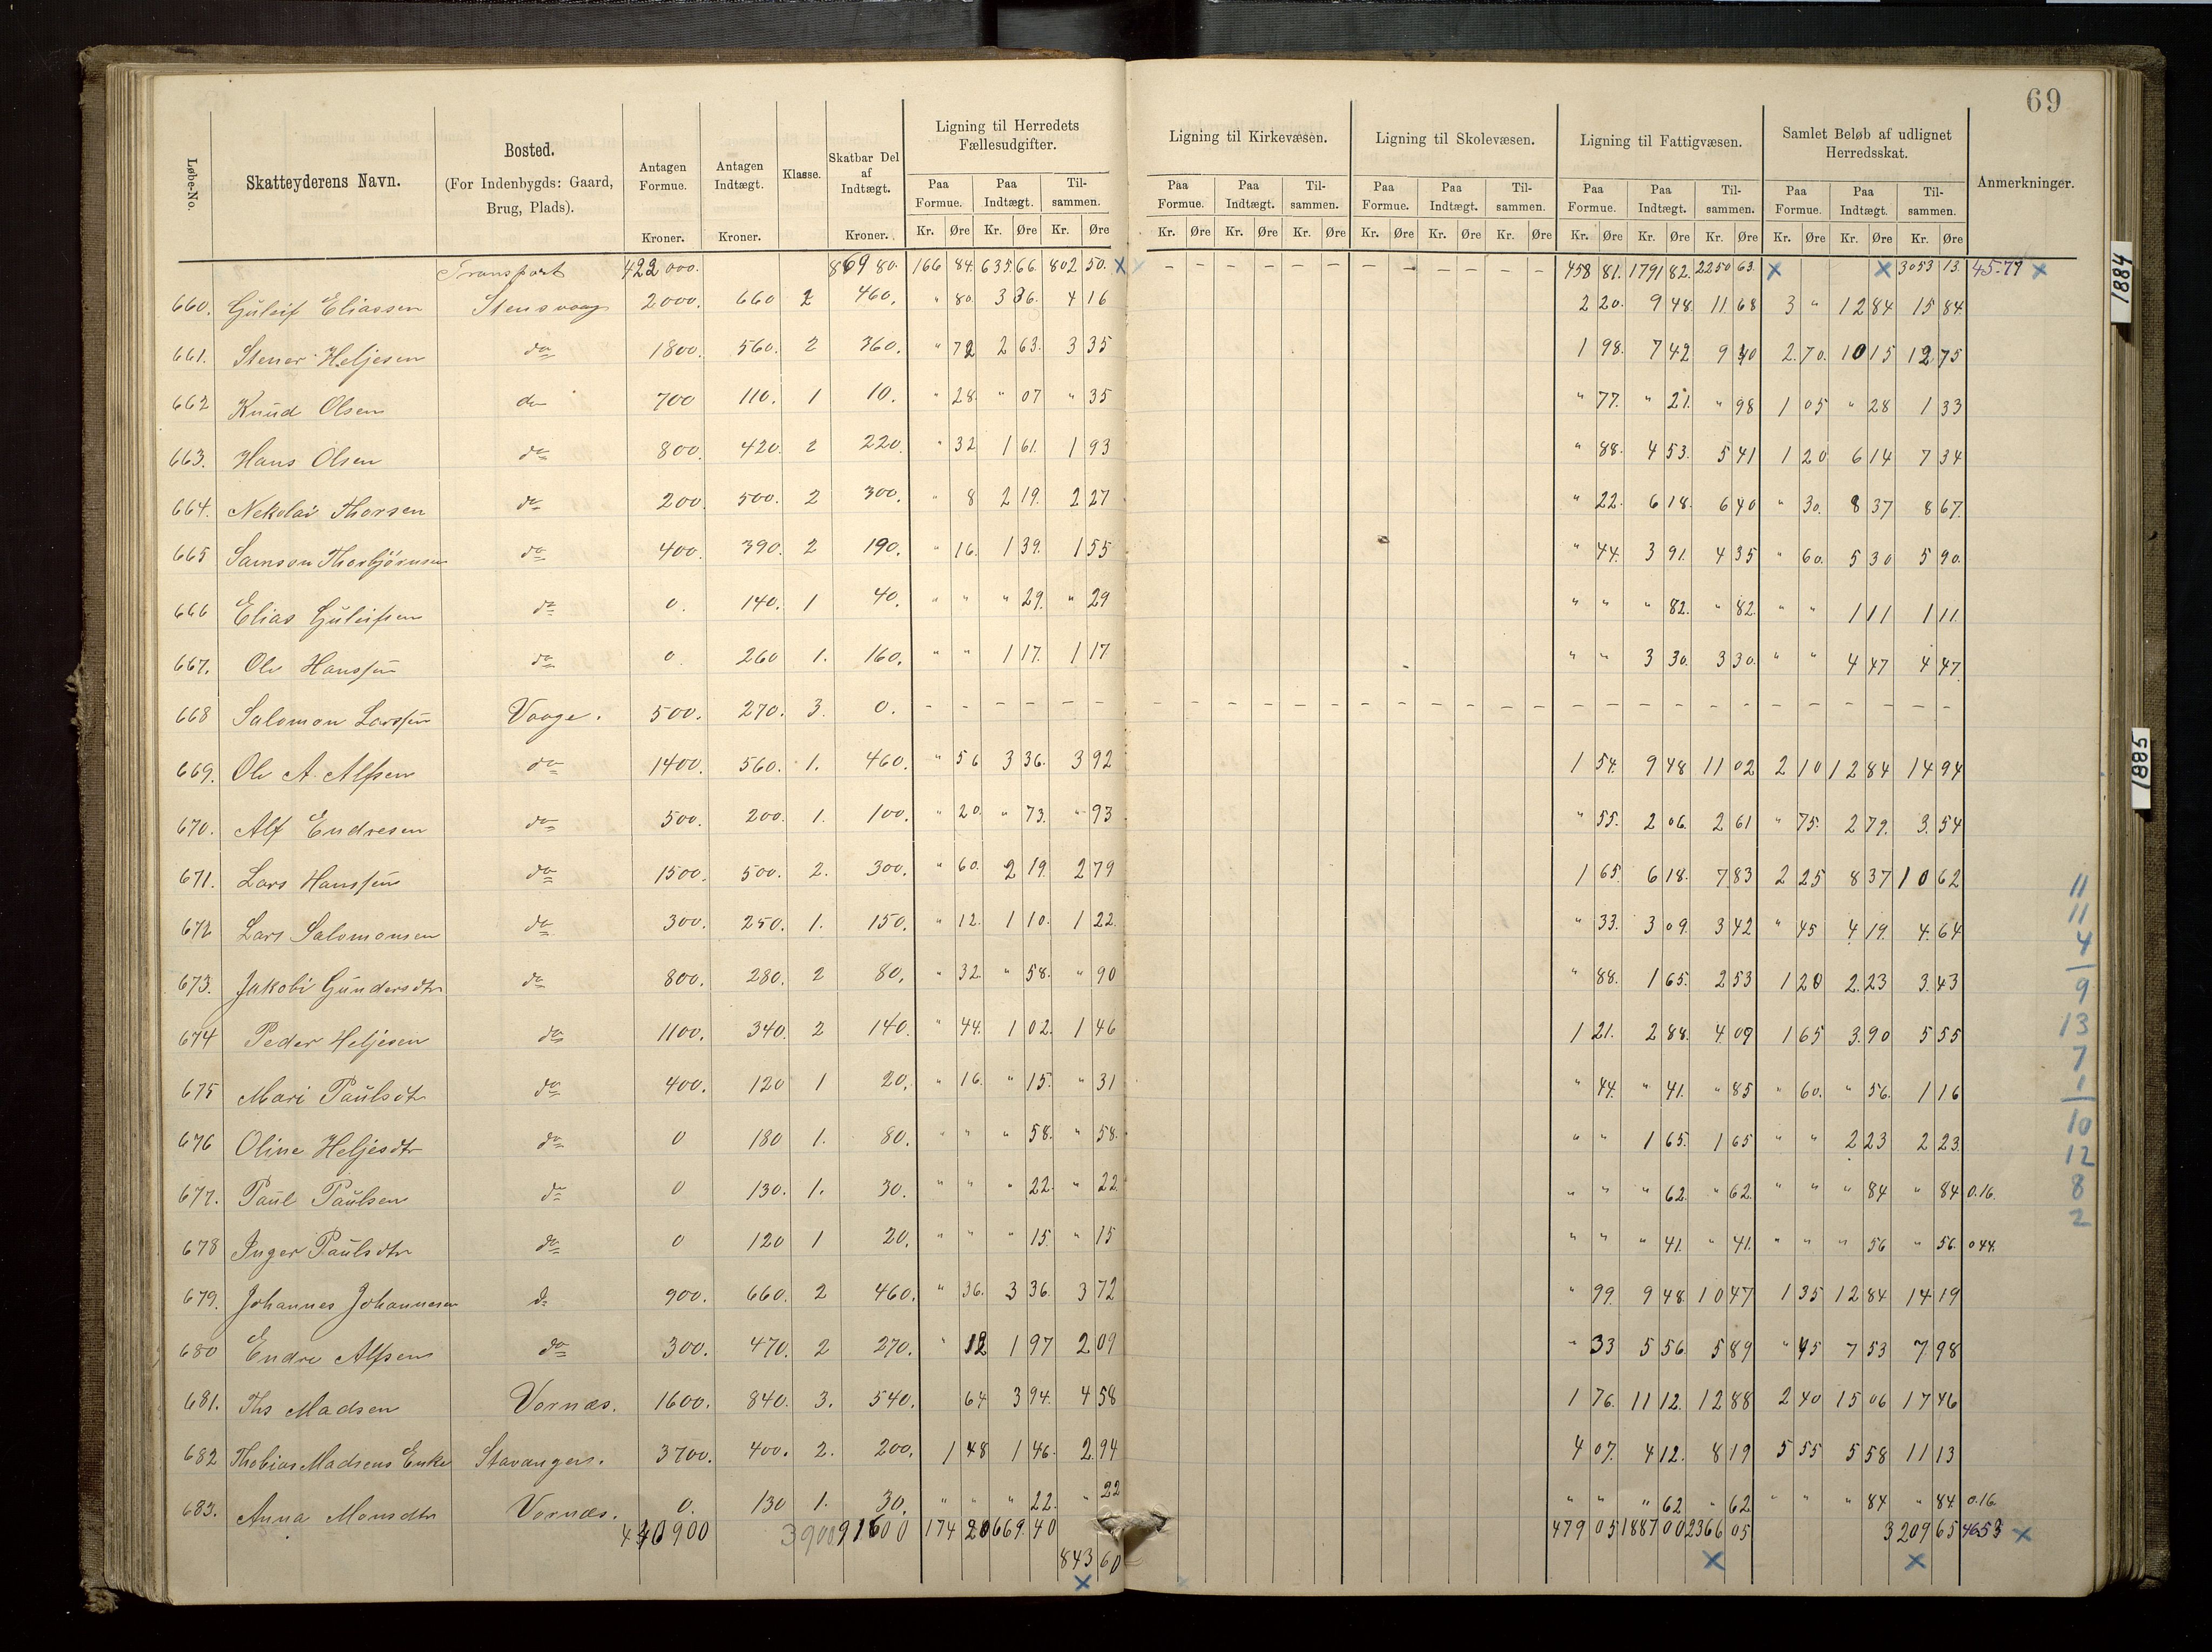 69
Løbe-No. Skatteyderens Navn. Bosted. (For Indenbygds: Gaard, Brug, Plads). Antagen Formue. Kroner. Antagen Indtægt. Kroner. Klasse. Skatbar Del af Indtægt. Kroner. Ligning til Herredets Fællesudgifter. Ligning til Kirkevæsen. Ligning til Skolevæsen. Ligning til Fattigvæsen. Samlet Beløb af udlignet Herredsskat. Anmerkninger.
Paa Formue. Paa Indtægt. Til- sammen. Paa Formue. Paa Indtægt. Til- sammen. Paa Formue. Paa Indtægt. Til- sammen. Paa Formue. Paa Indtægt. Til- sammen. Paa Formue. Paa Indtægt. Til- sammen.
Kr. Øre Kr. Øre Kr. Øre Kr. Øre Kr. Øre Kr. Øre Kr. Øre Kr. Øre Kr. Øre Kr. Øre Kr. Øre Kr. Øre Kr. Øre Kr. Øre Kr. Øre
Transport 422000. 86980. 166 84. 635 66. 802 50. x - - - - - - - - - - - - 458 81. 1791 82. 2250 63. x x 3053 13. 45.77 x
660. Guleif Eliassen Stensvaag 2000. 660 2 460. " 80. 3 36. 4 16 2 20. 9 48. 11 68 3 " 12 84 15 84
661. Stener Heljesen do 1800. 560. 2 360. " 72 2 63. 3 35 1 98. 7 42 9 40 2.70. 10 15 12 75
662 Knud Olsen do 700 110. 1 10. " 28. " 07 " 35 " 77. " 21. " 98 1 05 " 28 1 33
663. Hans Olsen do 800. 420. 2 220. " 32 1 61. 1 93 " 88. 4 53. 5 41 1 20 6 14 7 34
664. Nekolai Thorsen do 200. 500. 2 300. " 8 2 19. 2 27 " 22. 6 18. 6 40 " 30. 8 37 8 67.
665 Samson Thorbjørnsen do 400. 390. 2 190. " 16. 1 39. 1 55 " 44. 3 91. 4 35 " 60. 5 30 5 90.
666 Elias Guleifsen do 0. 140. 1 40. " " " 29. " 29 " " " 82. " 82. " " 1 11 1 11.
667. Ole Hanssen do 0. 260 1. 160. " " 1 17. 1 17 " " 3 30. 3 30. " " 4 47 4 47.
668 Salomon Larssen Vaage. 500. 270. 3. 0. - - - - - - - - - - - - - - - - - - - - - - - - - - - - - -
669. Ole A. Alfsen do 1400. 560. 1. 460. " 56 3 36. 3 92 1 54. 9 48 11 02 2 10 12 84 14 94
670. Alf Endresen do 500. 200. 1. 100. " 20. " 73. " 93 " 55. 2 06. 2 61 " 75. 2 79. 3.54
671. Lars Hanssen do 1500. 500. 2. 300. " 60. 2 19. 2 79 1 65. 6 18. 7 83 2 25 8 37 10 62
672 Lars Salomonsen do 300. 250. 1. 150. " 12. 1 10. 1 22. " 33. 3 09. 3 42 " 45 4 19. 4.64
673. Jakobi Gundersdtr do 800. 280. 2 80. " 32. " 58. " 90 " 88. 1 65. 2 53 1 20 2.23 3.43
674 Peder Heljesen do 1100. 340. 2 140. " 44. 1 02. 1 46 1 21. 2 88. 4 09 1 65 3.90 5 55
675 Mari Paulsdtr do 400. 120 1 20. " 16. " 15. " 31 " 44. " 41. " 85 " 60. " 56. 1 16
676 Oline Heljesdtr do 0 180 1. 80. " " " 58. " 58. " " 1 65. 1 65 " " 2 23 2 23.
677. Paul Paulsen do 0 130. 1. 30. " " " 22. " 22. " " " 62. " 62. " " " 84 " 84 0.16.
678 Inger Paulsdtr do 0 120 1 20. " " " 15. " 15 " " " 41. " 41. " " " 56 " 56. 0 44.
679. Johannes Johannesen do 900. 660. 2 460. " 36. 3 36. 3 72 " 99. 9 48. 10 47 1 35 12 84 14 19
680 Endre Alfsen do 300. 470. 2 270. " 12 1 97 2 09 " 33 5 56. 5 89 " 45 7 53 7 98
681. Ths Madsen Vornæs. 1600. 840. 3. 540. 64 3 94. 4 58 1 76. 11 12. 12 88 2 40 15 06 17 46
682 Thobias Madsens Enke Stavanger. 3700. 400. 2. 200. 1 48 1 46. 2.94 4 07. 4 12. 8 19 5 55 5 58 11 13
683. Anna Monsdtr Vornæs. 0. 130 1. 30. " " " 22. " 22 " " " 62 " 62 " " " 84 " 84. 0.16.
440900 3900 91600 174 20 669 40 479 05 1887 00 2366 05 3209 65 4653 x
843 60 x x
x
11
11
4
9
13
7
1
10
12
8
2
1884
1885